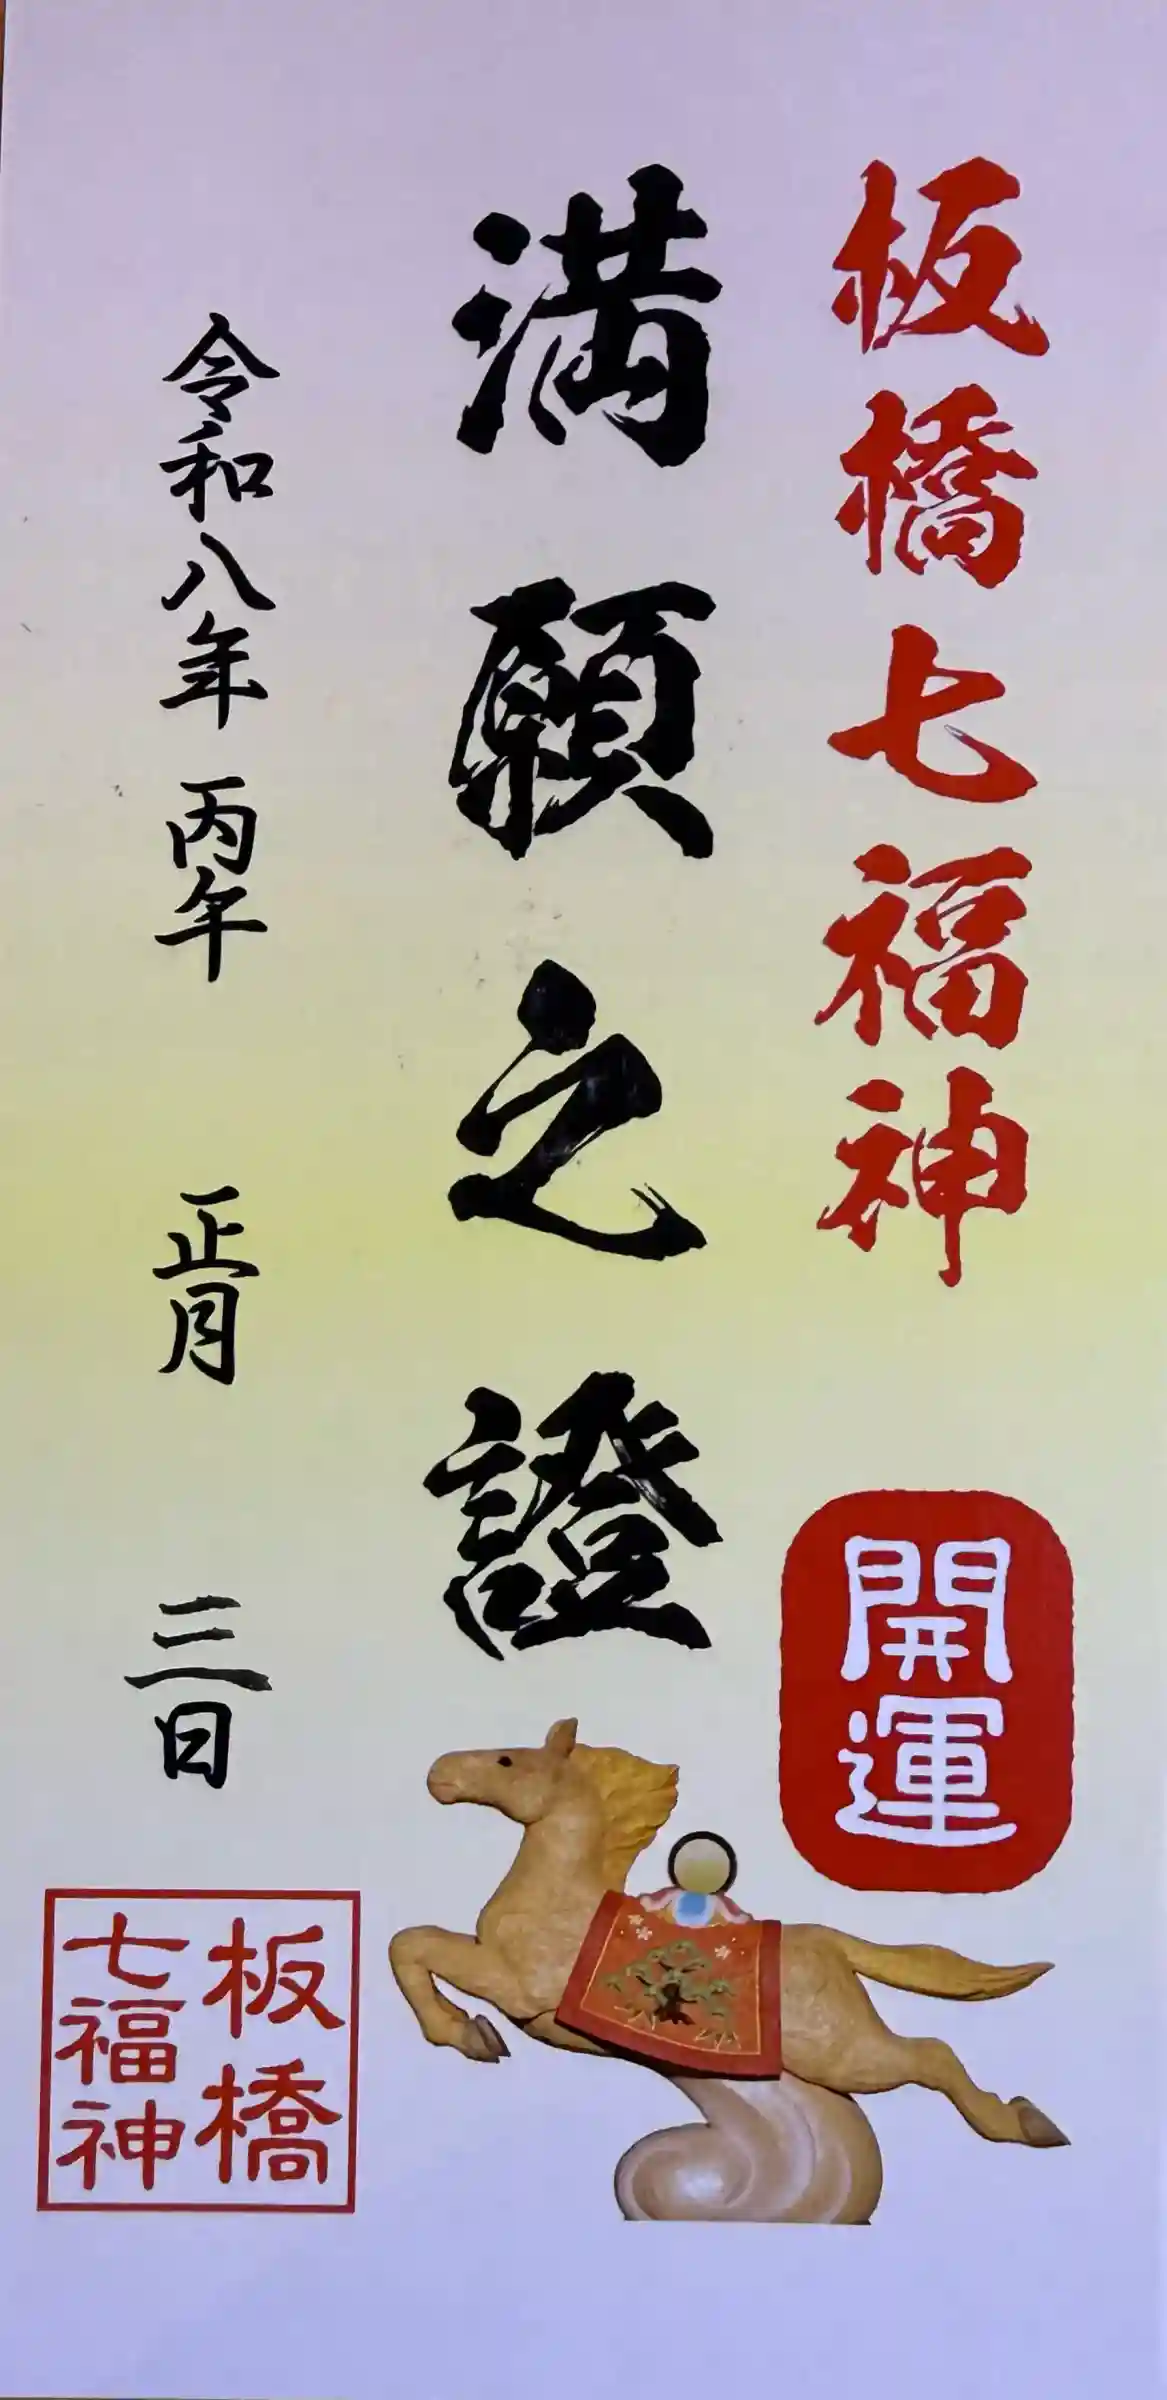 板橋七福神
開運
満願之證
令和八年 丙午 正月 三日
板橋
七福神